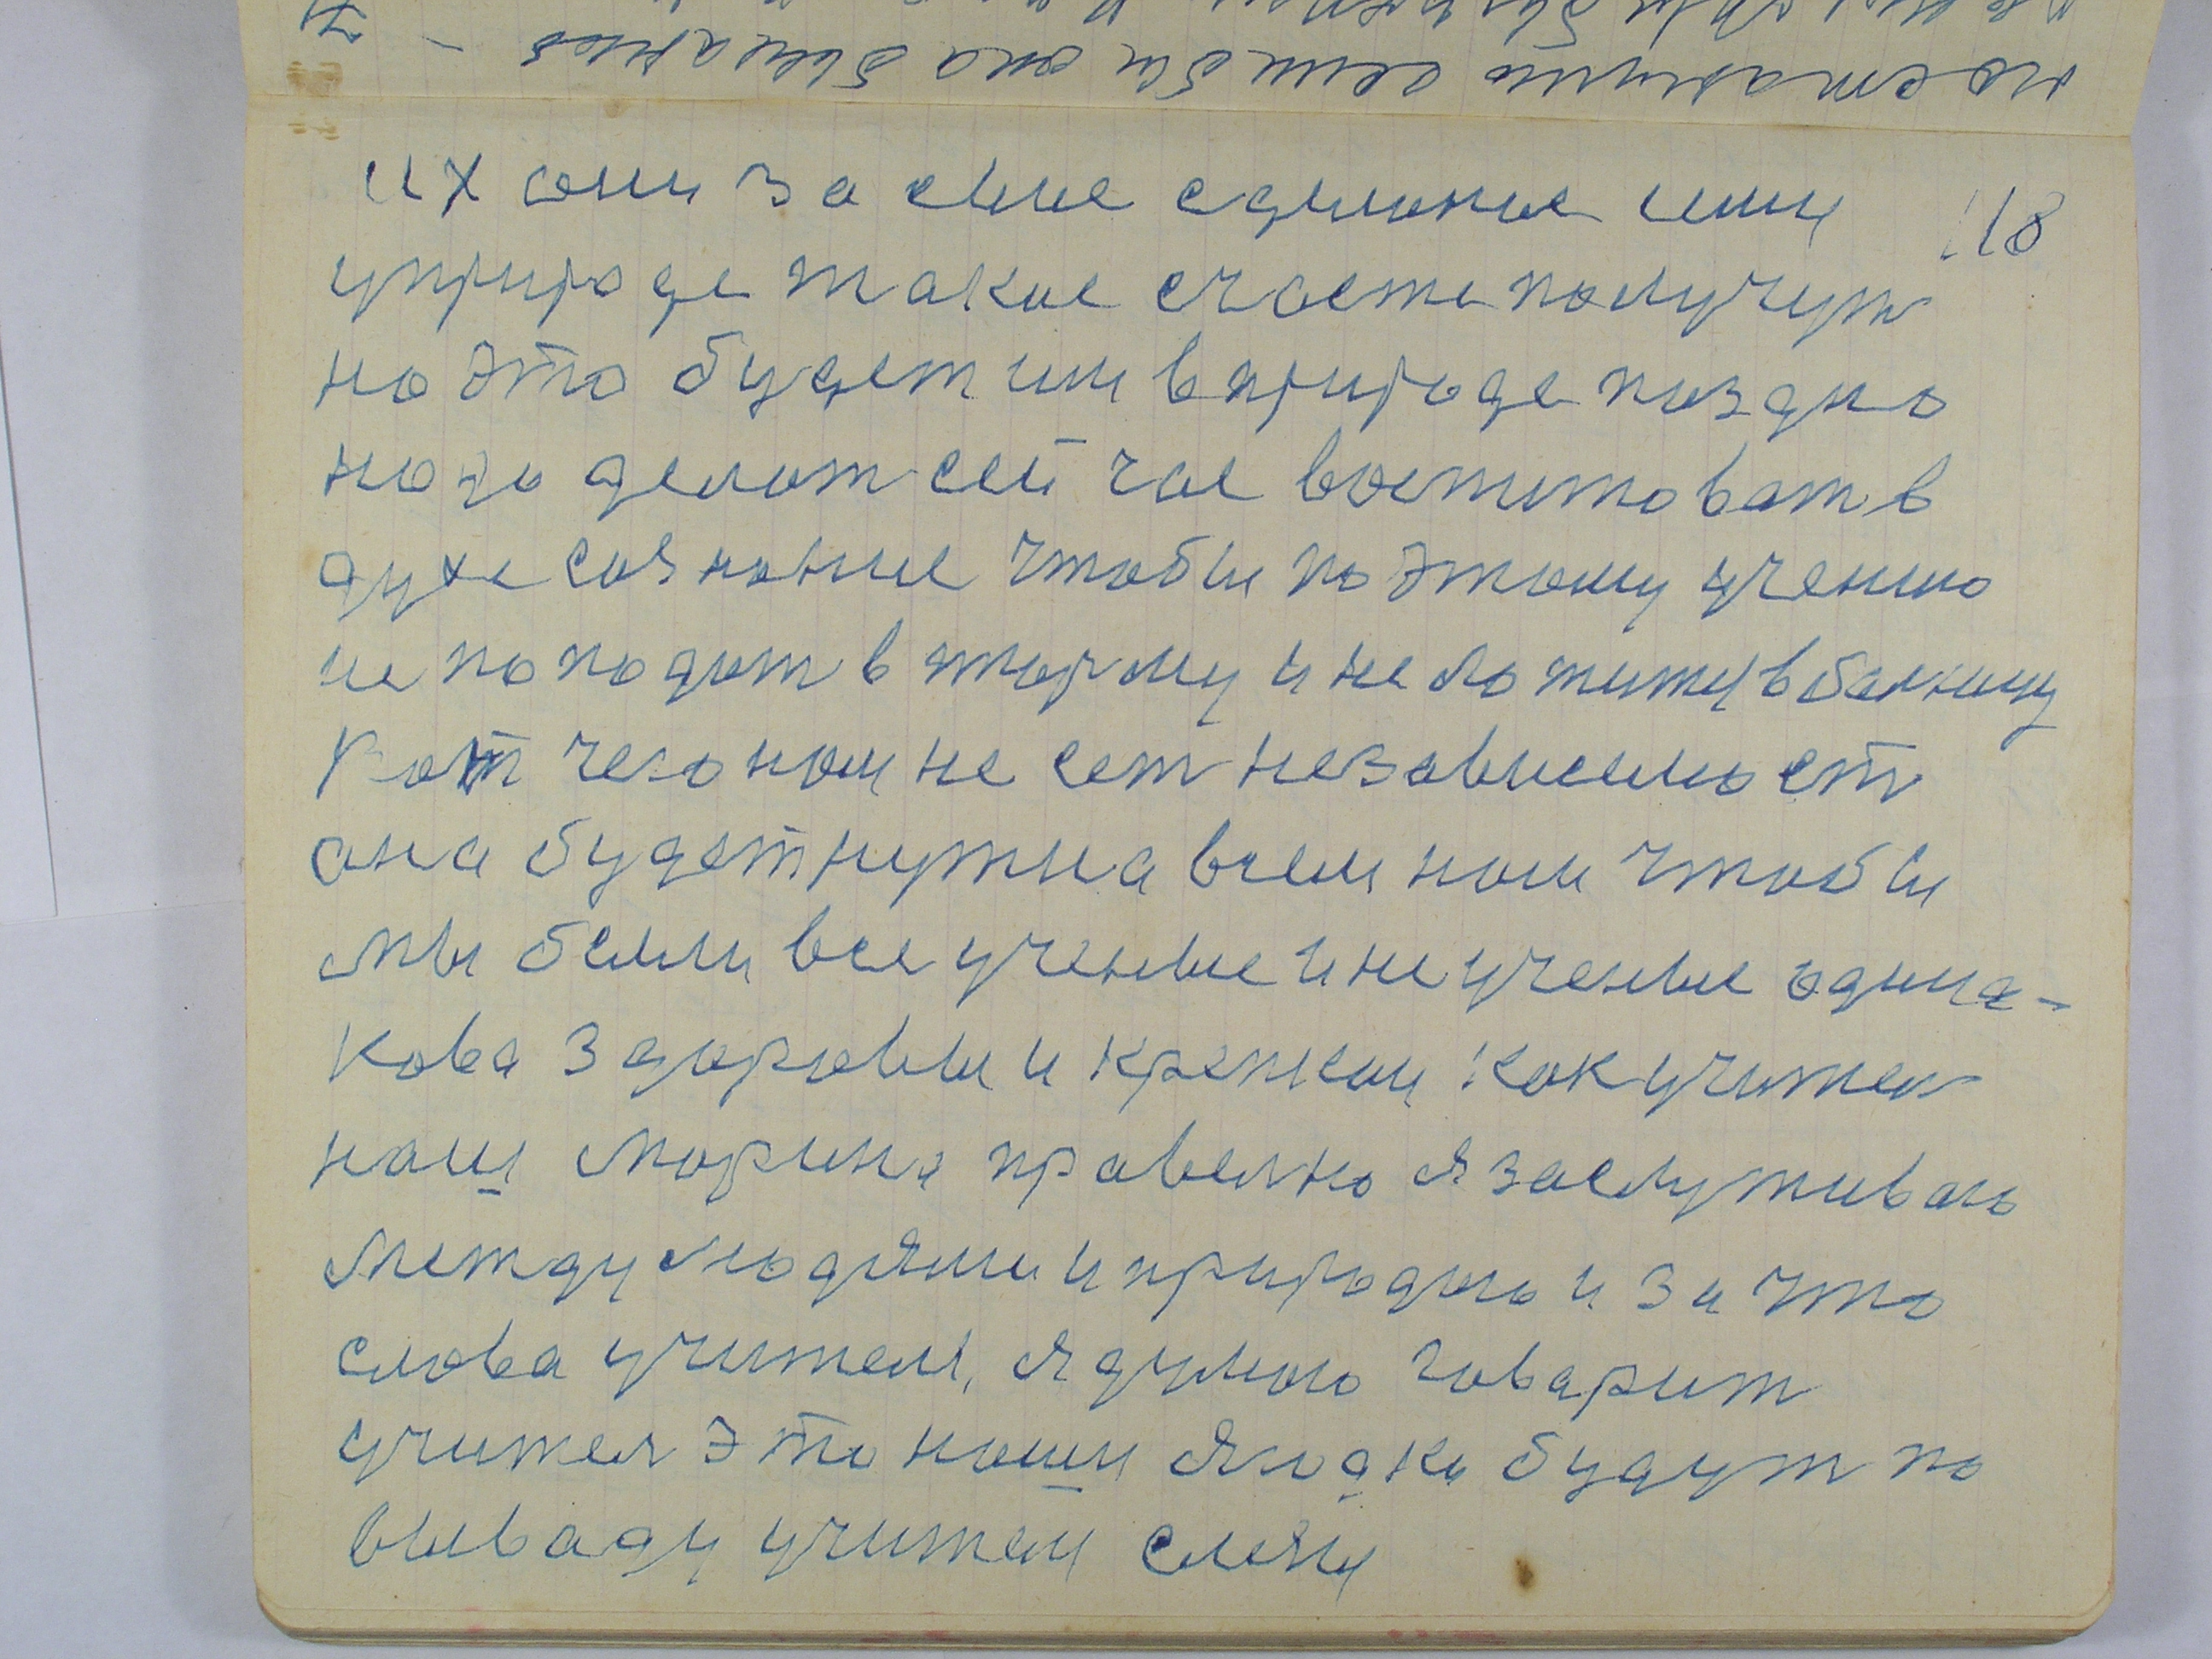 118
их они за свие сделоное ими
уприроде такое счастя получут
но это будет им вприроде поздно
нодо делот сей час воститоват в
духе созноние чтобы по этому учению
не пополот в тюрму и не ложитц в болницу
Вот чего ном не сет незовисемост
она будет нужна всем ном чтобы
мы были все ученые и не ученые одина-
кова здоровыи и крепкии как учител
нош морина правелно я заслуживаю
между людями и природою и за что
слова учителя, я думою говарит
учител это ноши ягодко будут по
вываду учители